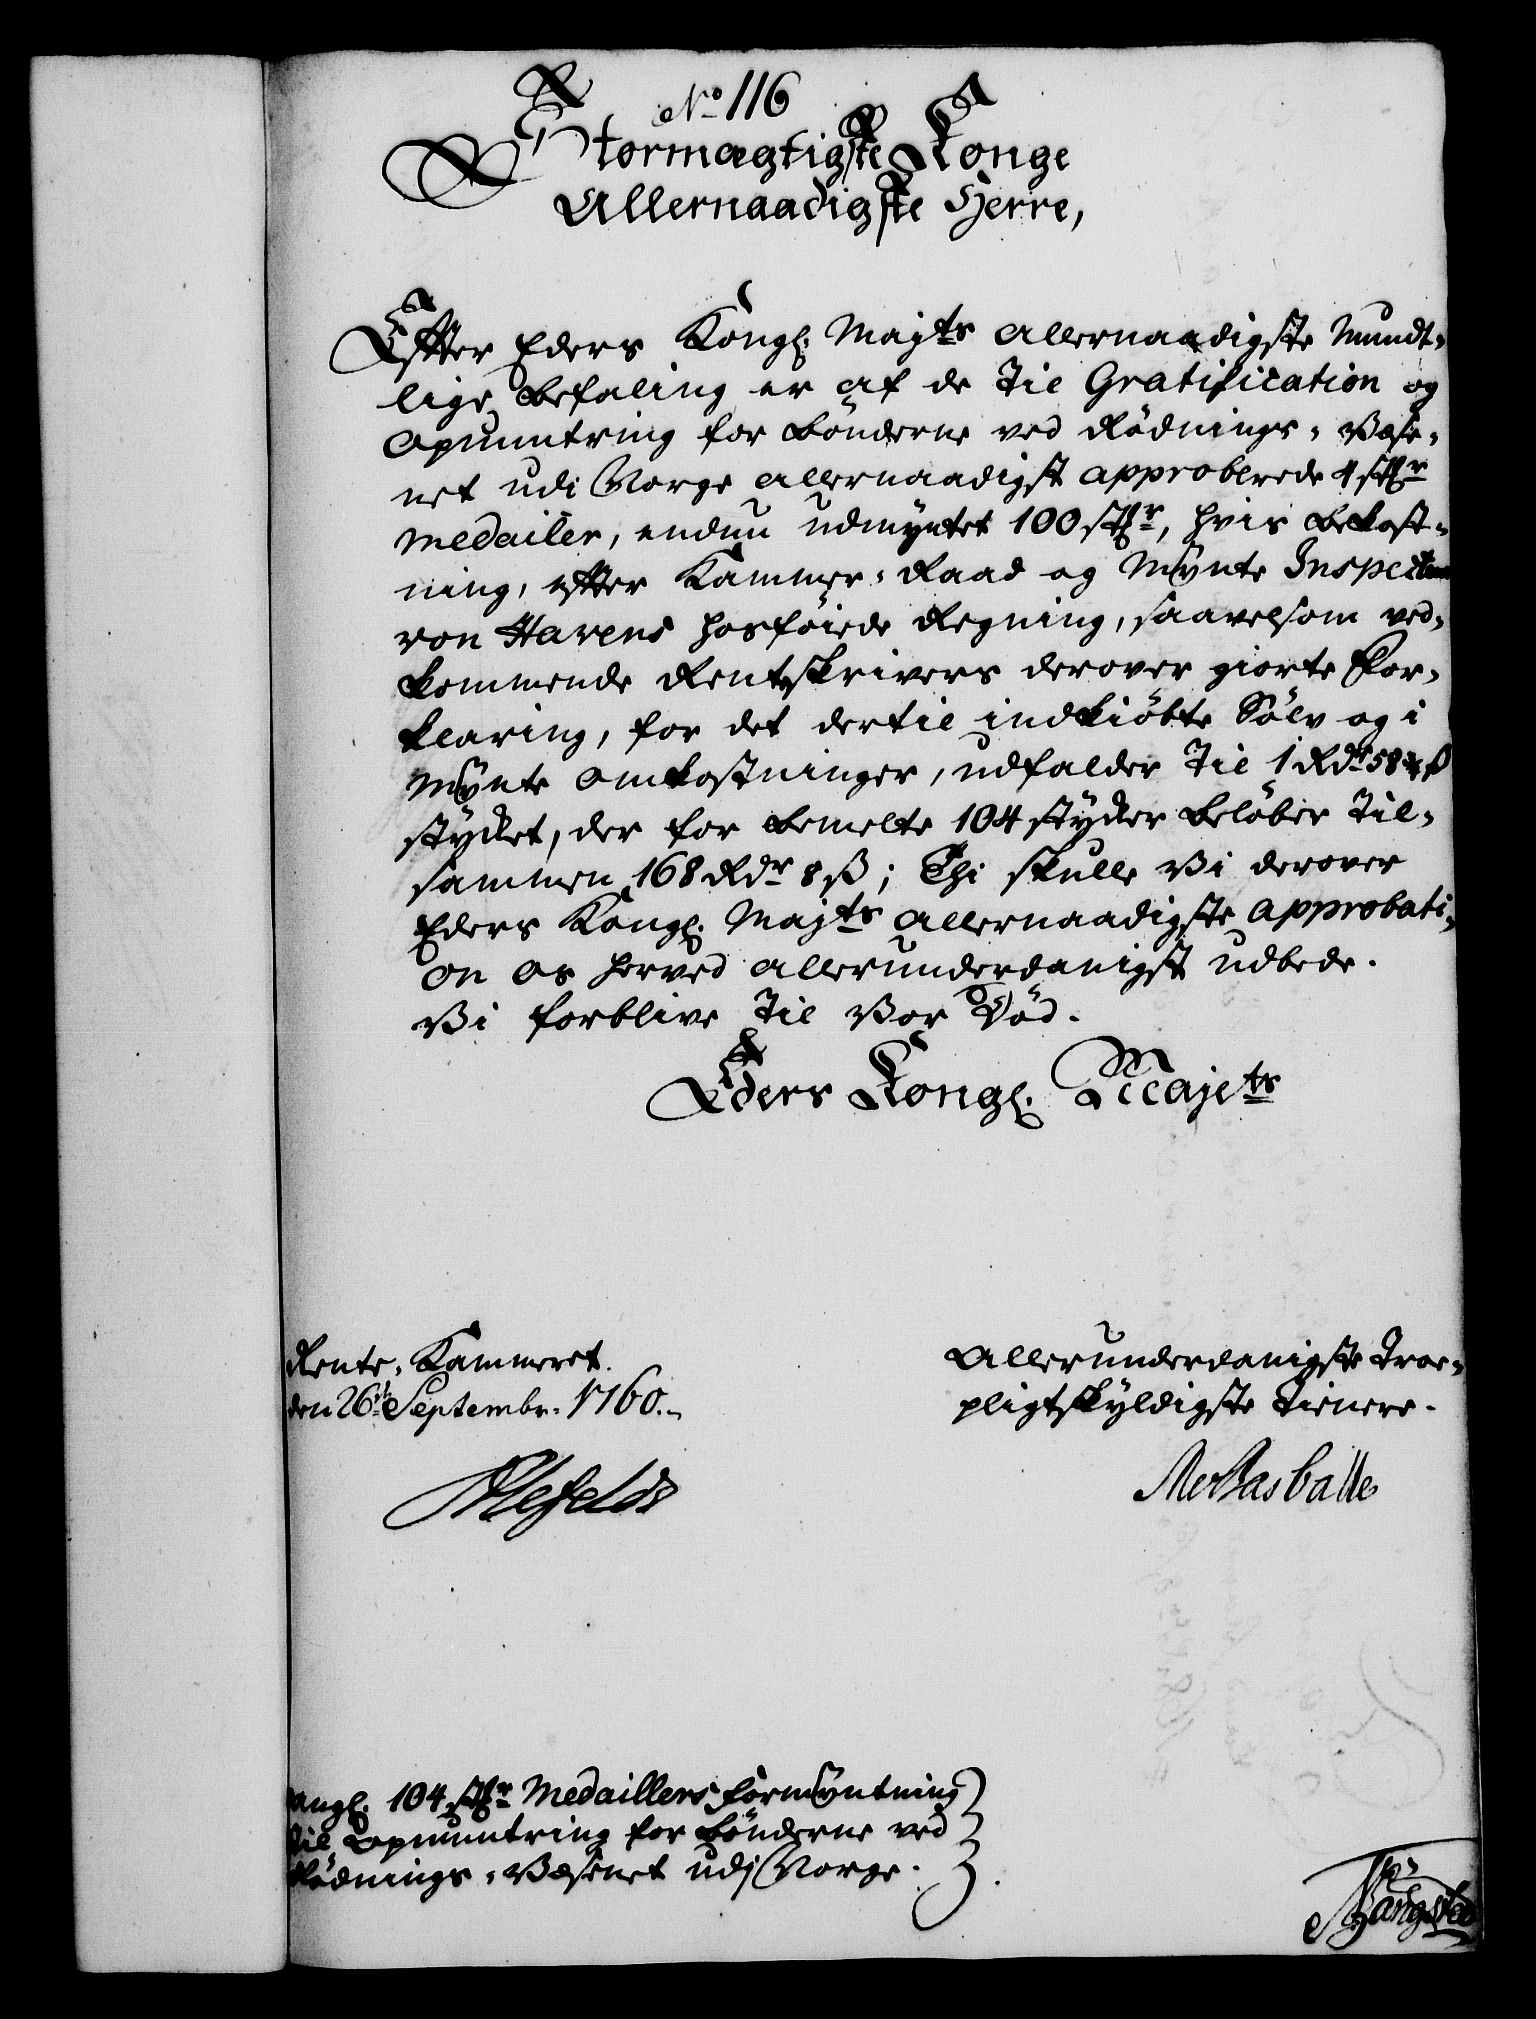 No 116
Stormægtigste Konge
Allernaadigste Herre,
Effter Eders Kongl. Majts allernaadigste Mundt-
lige Befaling er af de til Gratification og
Opmuntring for Bönderne ved Rödnings-Væse-
net udi Norge allernaadigst approberede 4 stkr
Medailer, endnu udmyntet 100 stkr, hvis Bekost-
ning, efter Kammer-Raad og Mynte Inspecteur
von Havens hosföiede Regning, saavelsom ved-
kommende Rentskrivers derover giorte For-
klaring, for det dertil indkiöbte Sölv og i
Mynte Omkostninger, udfalder til 1 Rdr 58 ß
stycket, der for bemelte 104 stycker belöber til-
sammen 168 Rdr 8 ß; Thi skulle Vi derover
Eders Kongl. Majts allernaadigste approbati-
on os herved allerunderdanigst udbede.
Vi forblive til Vor Död.
Eders Kongl. Majets
Rente-Kammeret.
den 26de Septembr. 1760.
Allerunderdanigste Troe-
pligtskyldigste Tienere.
Ahlefeldt
angl. 104 stkr Medaillers formyntning
til Opmuntring for Bönderne ved
Rödnings-Væsenet udj Norge.